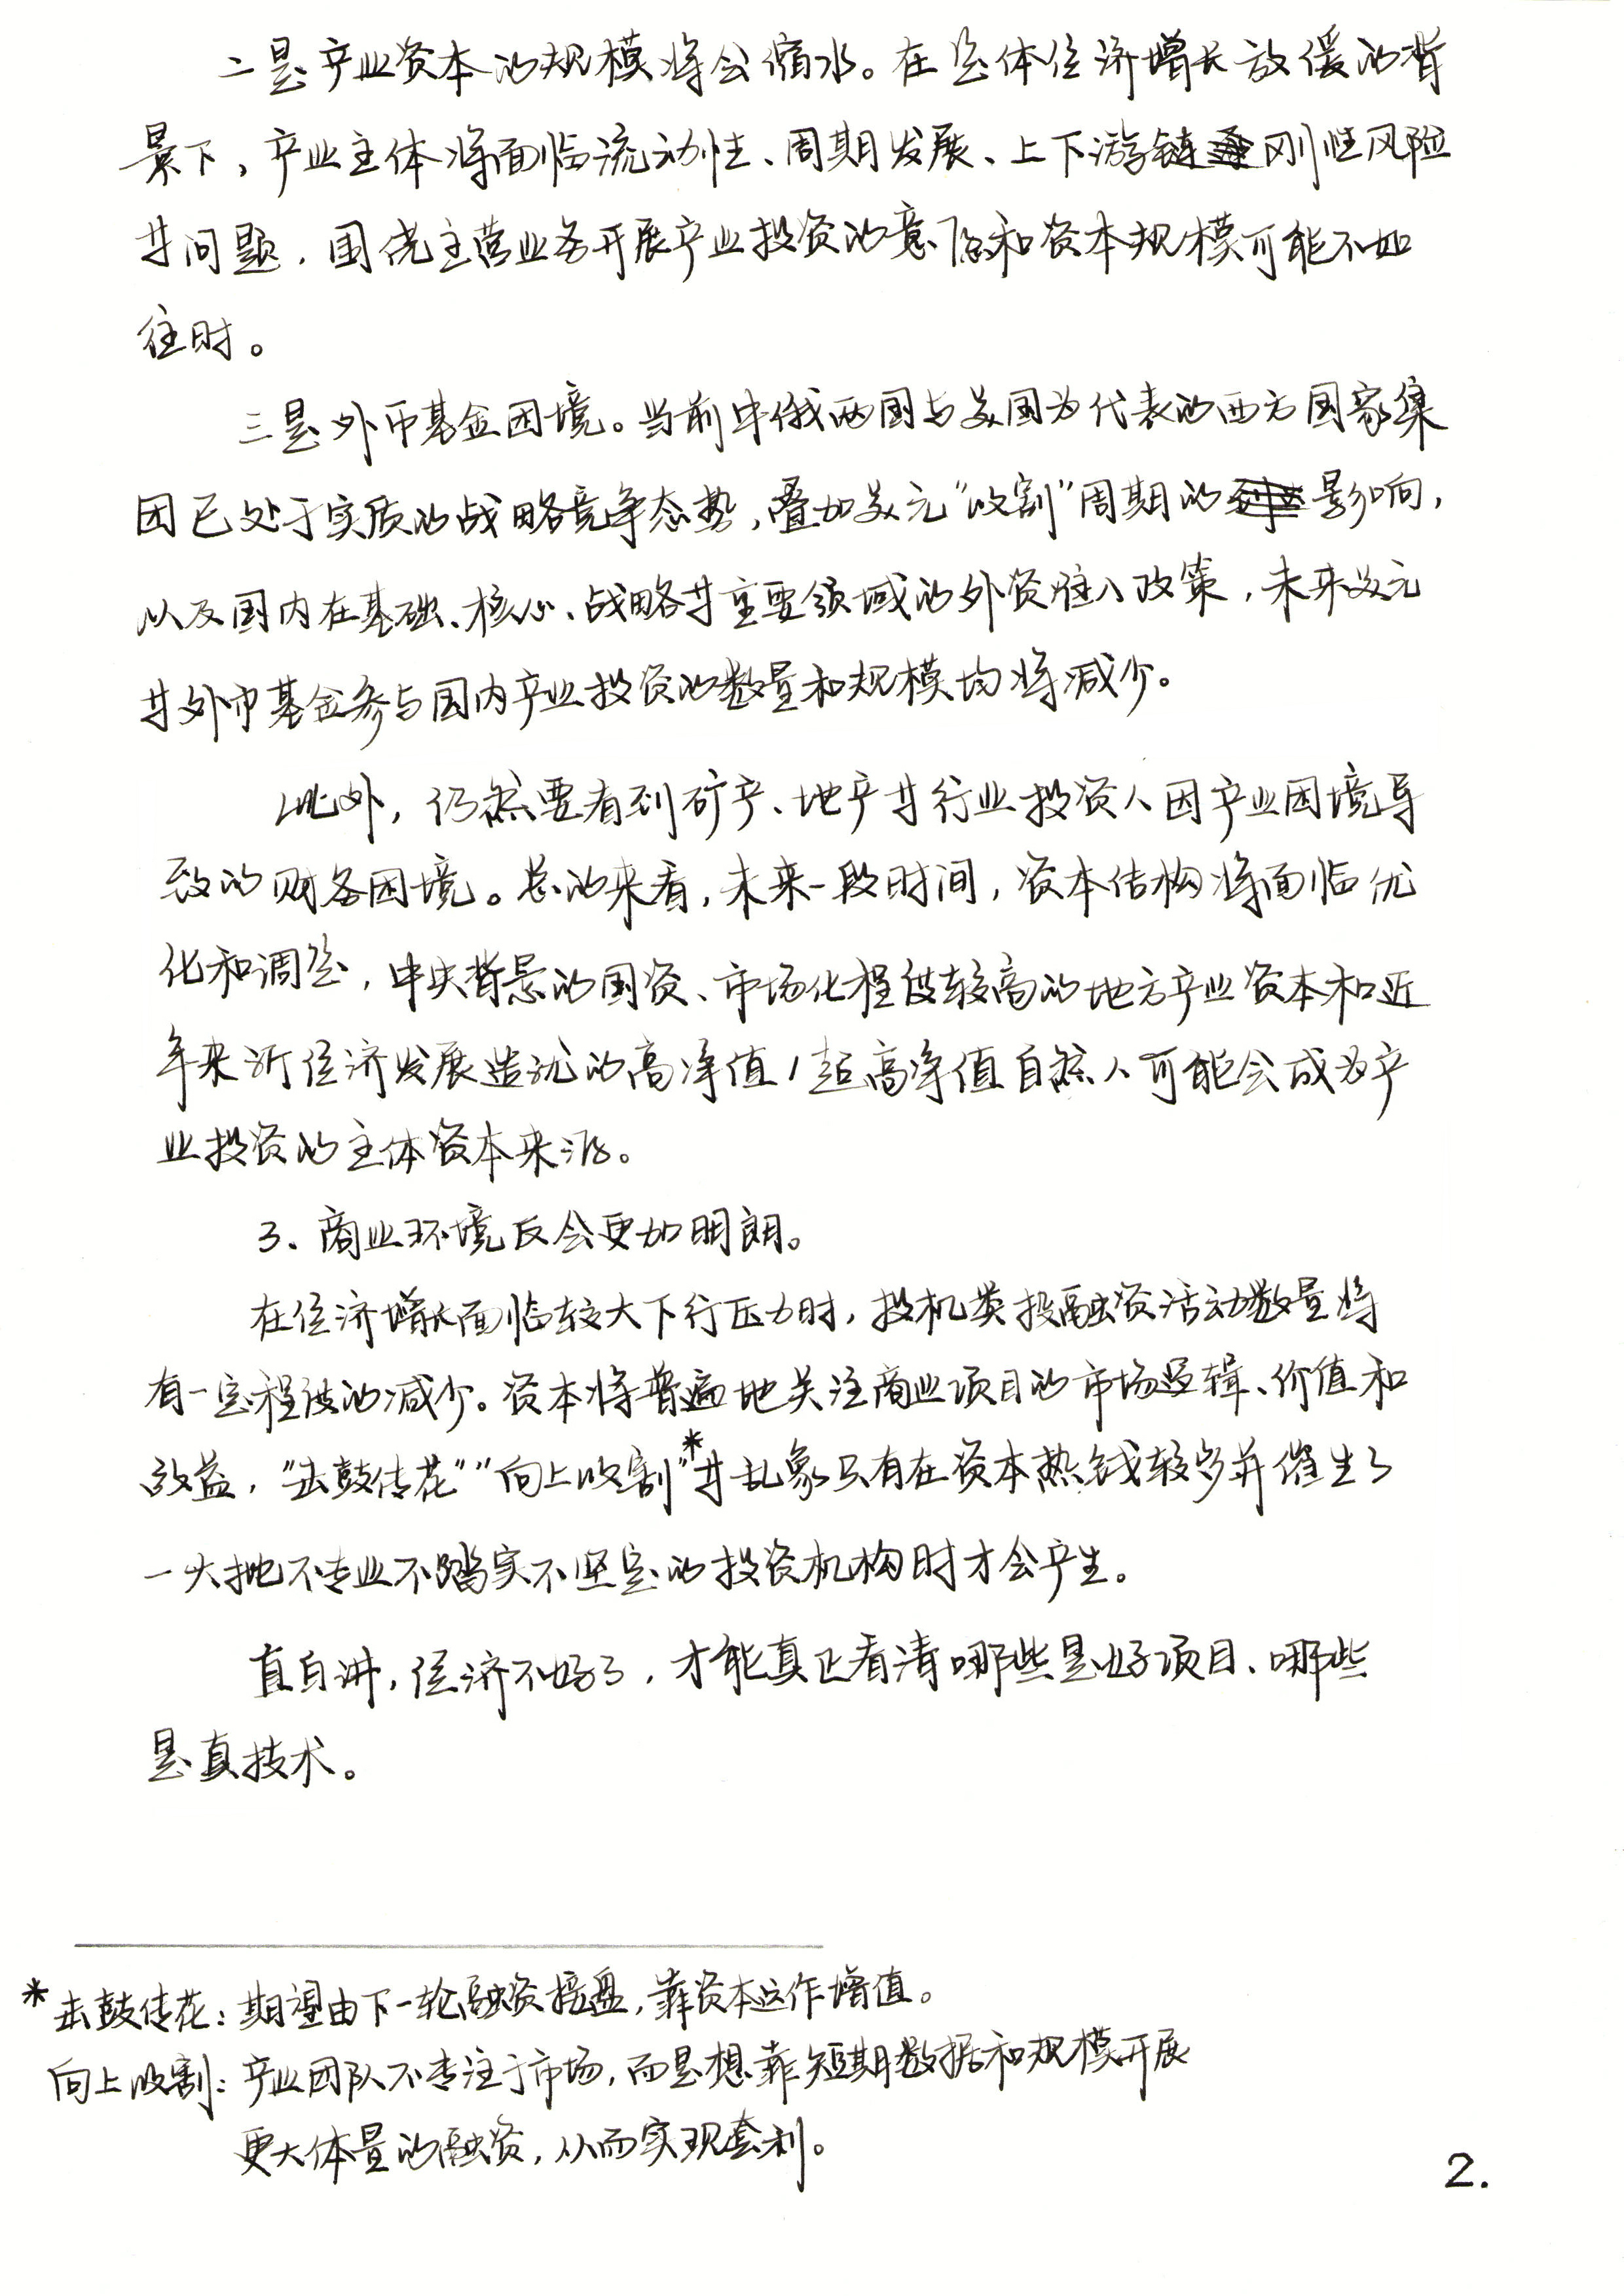 二是产业资本的规模将会缩水。在整体经济增长放缓的背
景下，产业主体将面临流动性、周期发展、上下游链刚性风险
等问题，围绕主营业务开展产业投资的意愿和资本规模可能不如
往时。
三是外币基金困境。当前中俄两国与美国为代表的西方国家集
团已处于实质的战略竞争态势，叠加美元“收割”周期的影响，
以及国内在基础、核心、战略等重要领域的外资准入政策，未来美元
等外币基金参与国内产业投资的数量和规模均将减少。
此外，仍然要看到矿产、地产等行业投资人因产业困境导
致的财务困境。总的来看，未来一段时间，资本结构将面临优
化和调整，中央背景的国资、市场化程度较高的地方产业资本和近
年来新经济发展造就的高净值/超高净值自然人可能会成为产
业投资的主体资本来源。
3、商业环境反会更加明朗。
在经济增长面临较大下行压力时，投机类投融资活动数量将
有一定程度的减少。资本将普遍地关注商业项目的市场逻辑、价值和
效益，“击鼓传花”“向上收割”*等乱象只有在资本热钱较多并催生了
一大批不专业不踏实不坚定的投资机构时才会产生。
直白讲，经济不好了，才能真正看清哪些是好项目、哪些
是真技术。
*击鼓传花：期望由下一轮融资接盘，靠资本运作增值。
向上收割：产业团队不专注于市场，而是想靠短期数据和规模开展
更大体量的融资，从而实现套利。
2.